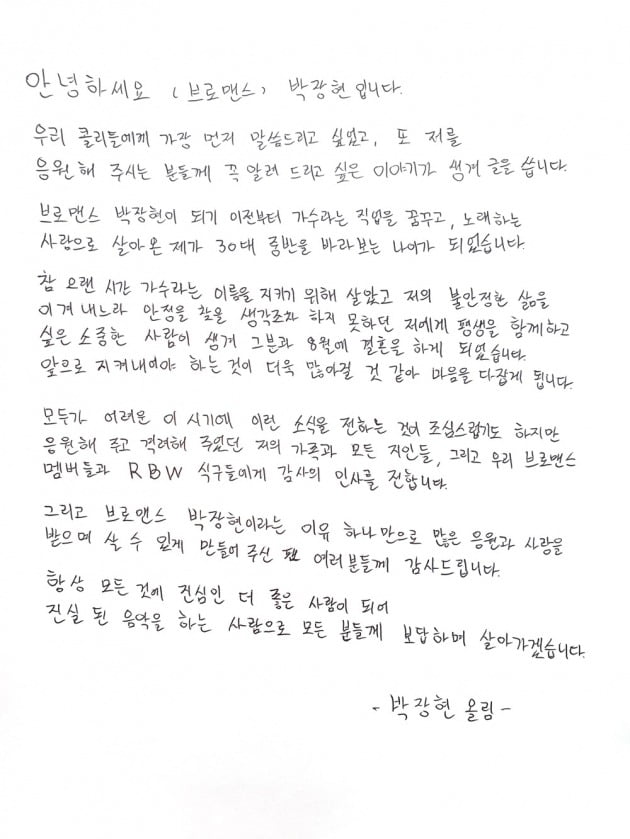 안녕하세요 (브로맨스) 박장현입니다.
우리 콜리들에게 가장 먼저 말씀드리고 싶었고, 또 저를
응원해 주시는 분들께 꼭 알려 드리고 싶은 이야기가 생겨 글을 씁니다.
브로맨스 박장현이 되기 이전부터 가수라는 직업을 꿈꾸고, 노래하는
사람으로 살아온 제가 30대 중반을 바라보는 나이가 되었습니다.
참 오랜 시간 가수라는 이름을 지키기 위해 살았고 저의 불안정한 삶을
이겨 내느라 안정을 찾을 생각조차 하지 못하던 저에게 평생을 함께하고
싶은 소중한 사람이 생겨 그분과 8월에 결혼을 하게 되었습니다.
앞으로 지켜내어야 하는 것이 더욱 많아질 것 같아 마음을 다잡게 됩니다.
모두가 어려운 이 시기에 이런 소식을 전하는 것이 조심스럽기도 하지만
응원해 주고 격려해 주었던 저의 가족과 모든 지인들, 그리고 우리 브로맨스
멤버들과 RBW 식구들에게 감사의 인사를 전합니다.
그리고 브로맨스 박장현이라는 이유 하나만으로 많은 응원과 사랑을
받으며 살 수 있게 만들어 주신 팬 여러분들께 감사드립니다.
항상 모든 것에 진심인 더 좋은 사람이 되어
진실 된 음악을 하는 사람으로 모든 분들께 보답하며 살아가겠습니다.
- 박장현 올림 -